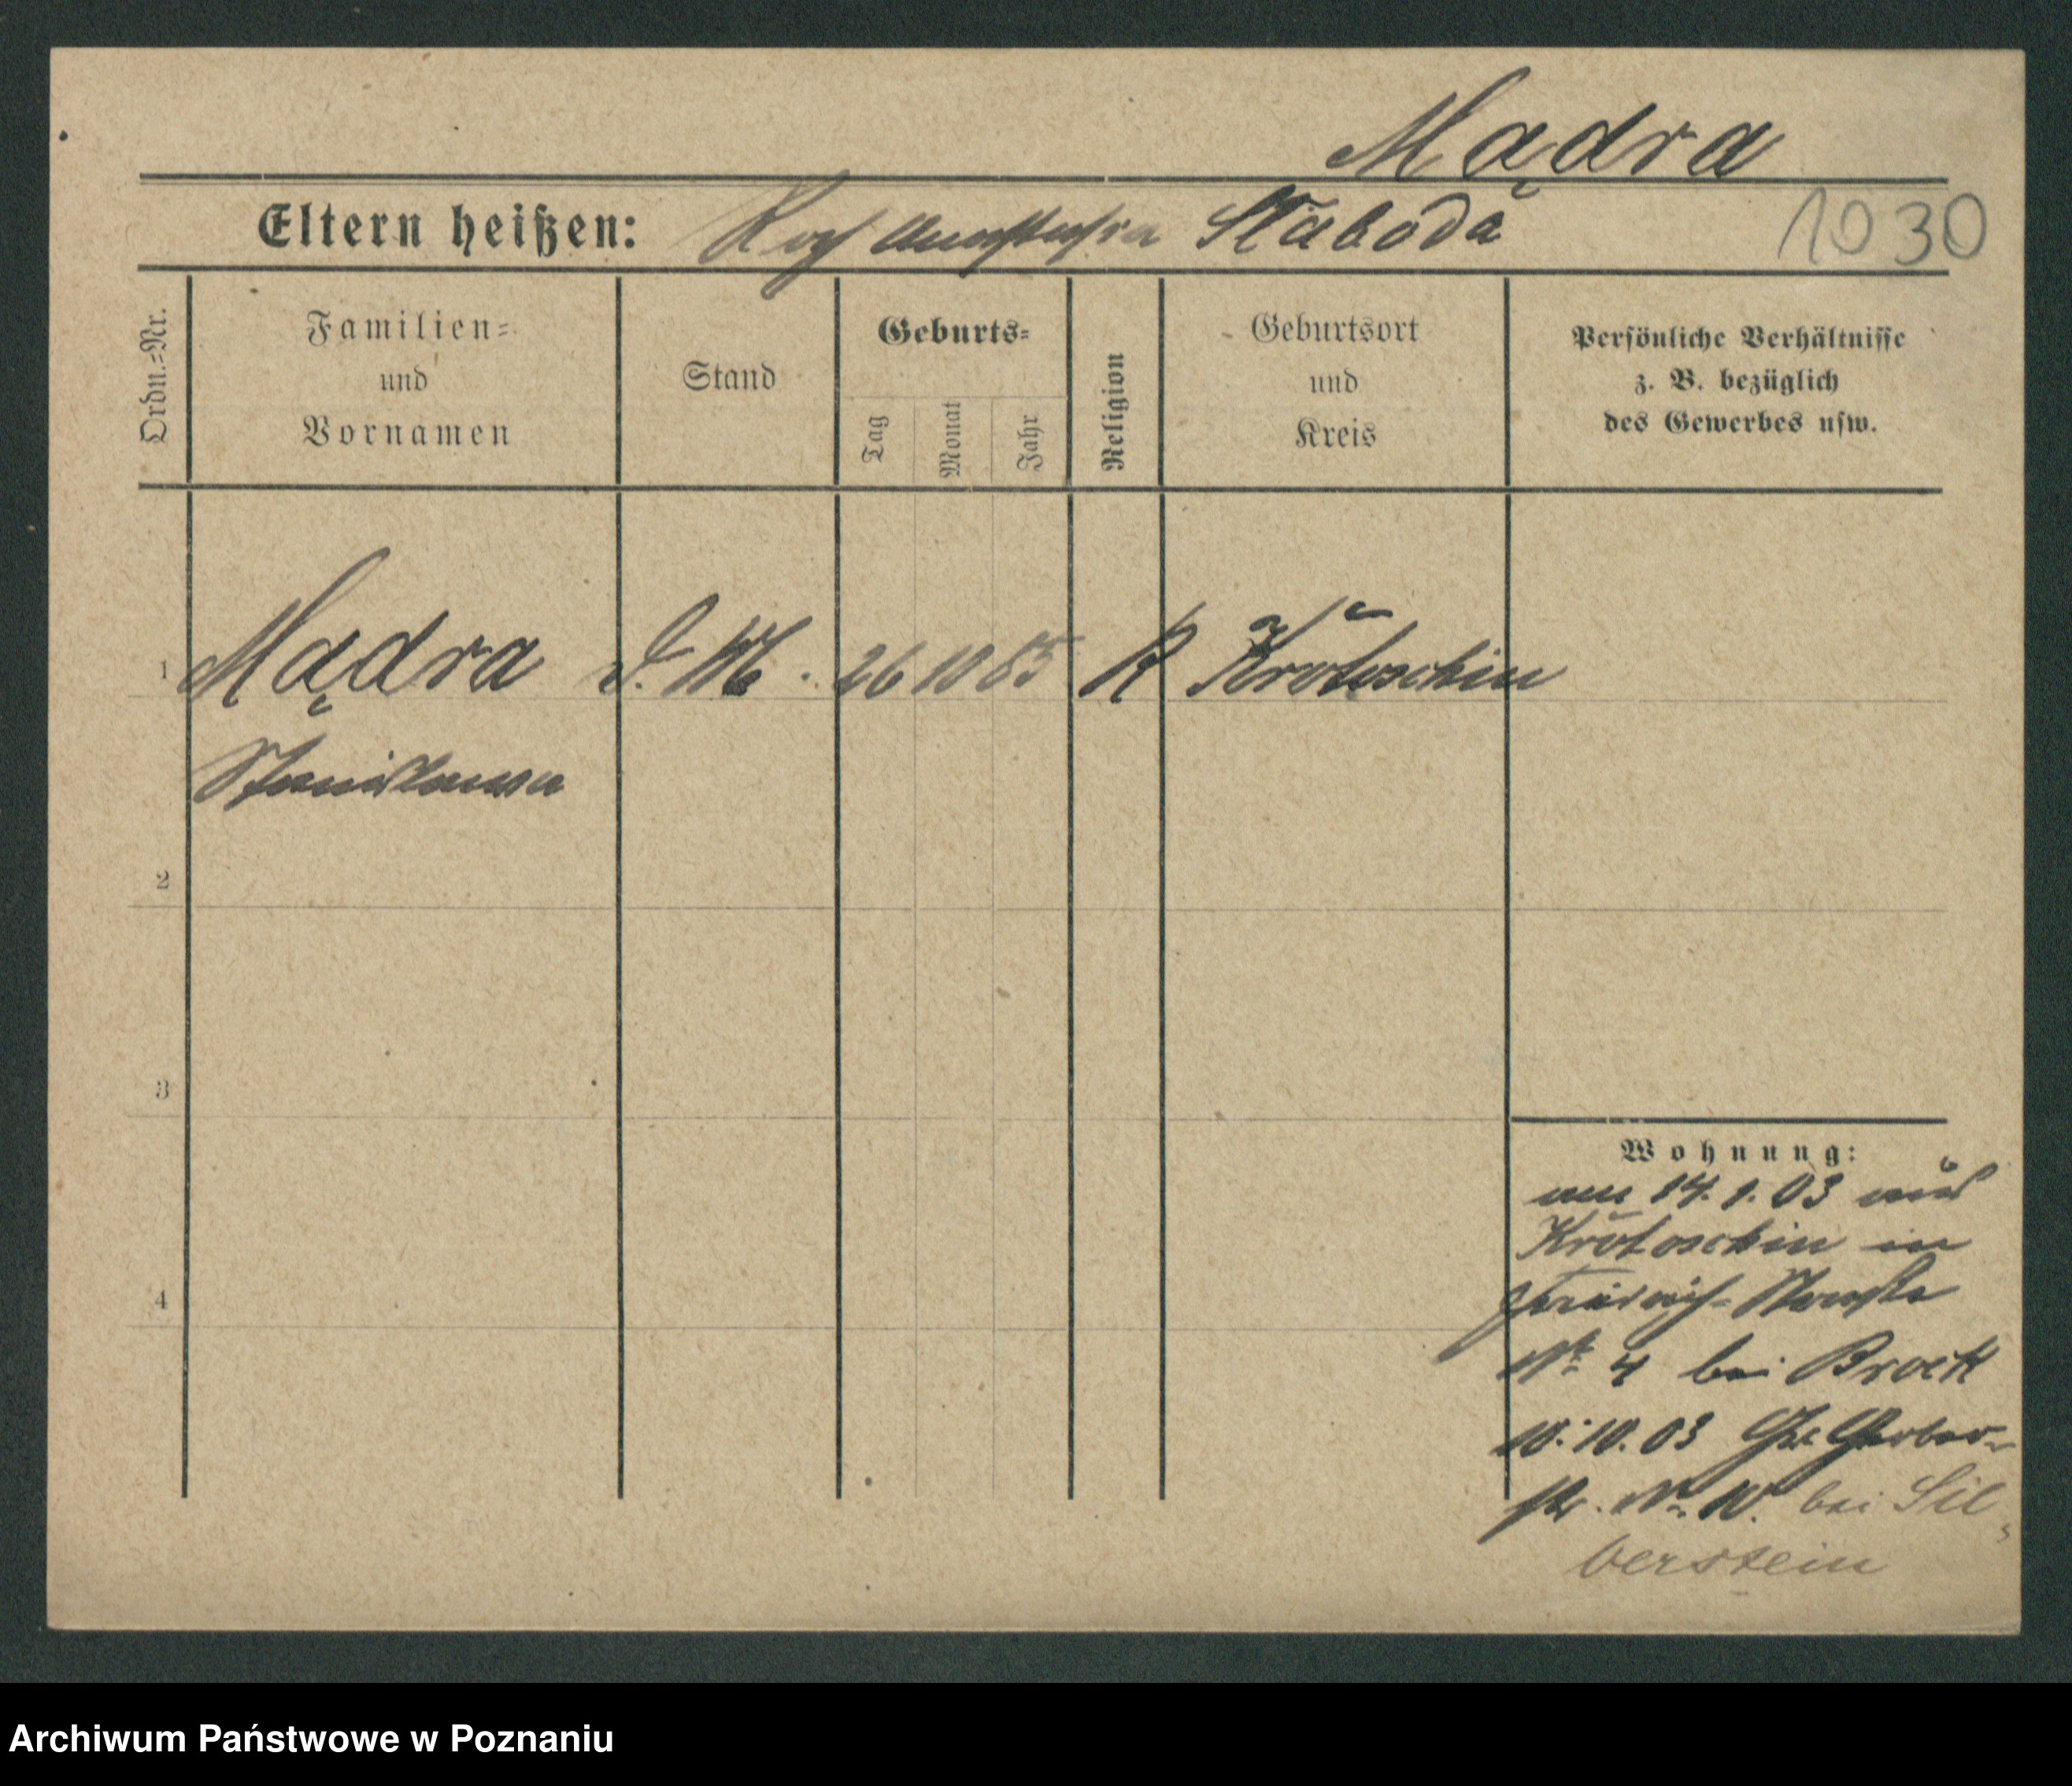 Mądra
Eltern heißen: Roch Slaboda
1030
Ordn.=Nr.
Familien=
und
Vornamen
Stand
Geburts=
Tag
Monat
Jahr
Religion
Geburtsort
und
Kreis
Persönliche Verhältnisse
z. B. bezüglich
des Gewerbes usw.
1 Mądra D. M. 26 10 85 K Krotoschin
Stanislawa
2
3
4
Wohnung:
am 14. 1. 03 aus
Krotoschin in
Friedrich-Straße
Nr 4 bei Brock
10. 10. 03 Gr. Gerber-
str. Nr. 10. bei Sil-
berstein
Archiwum Państwowe w Poznaniu